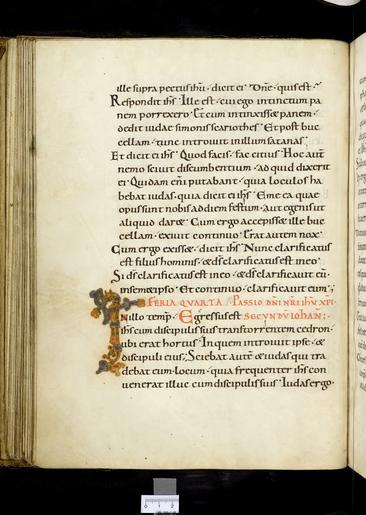 ille supra pectus ihu · dicit ei · Dne · quis est ·
Respondit ihs · Ille est · cui ego intinctum pa
nem porrexero · Et cum intinxisset panem ·
dedit iudae simonis scariothes · Et post buc
cellam · tunc introiuit in illum satanas ·
Et dicit ei ihs · Quod facis · fac citius · Hoc aut
nemo sciuit discumbentium · ad quid dixerit
ei · Quidam eni putabant · quia loculos ha
bebat iudas · quia dicit ei ihs · Eme ea quae
opus sunt nobis ad diem festum · aut egenis ut
aliquid daret · Cum ergo accepisset ille buc
cellam · exiuit continuo · Erat autem nox ·
Cum ergo exisset · dicit ihs · Nunc clarificatus
est filius hominis · & ds clarificatus est in eo ·
Si ds clarificatus est in eo · & ds clarificauit eu
in semetipso · Et continuo · clarificauit eum ·
FERIA QUARTA · PASSIO DNI NRI IHU XPI ·
In illo temp · Egressus est SECUNDU IOHAN ·
ihs cum discipulis suis trans torrentem cedron ·
ubi erat hortus · In quem introiuit ipse · &
discipuli eius · Sciebat aute & iudas qui tra
debat eum · locum · quia frequenter ihs con
uenerat illuc cum discipulis suis · Iudas ergo ·